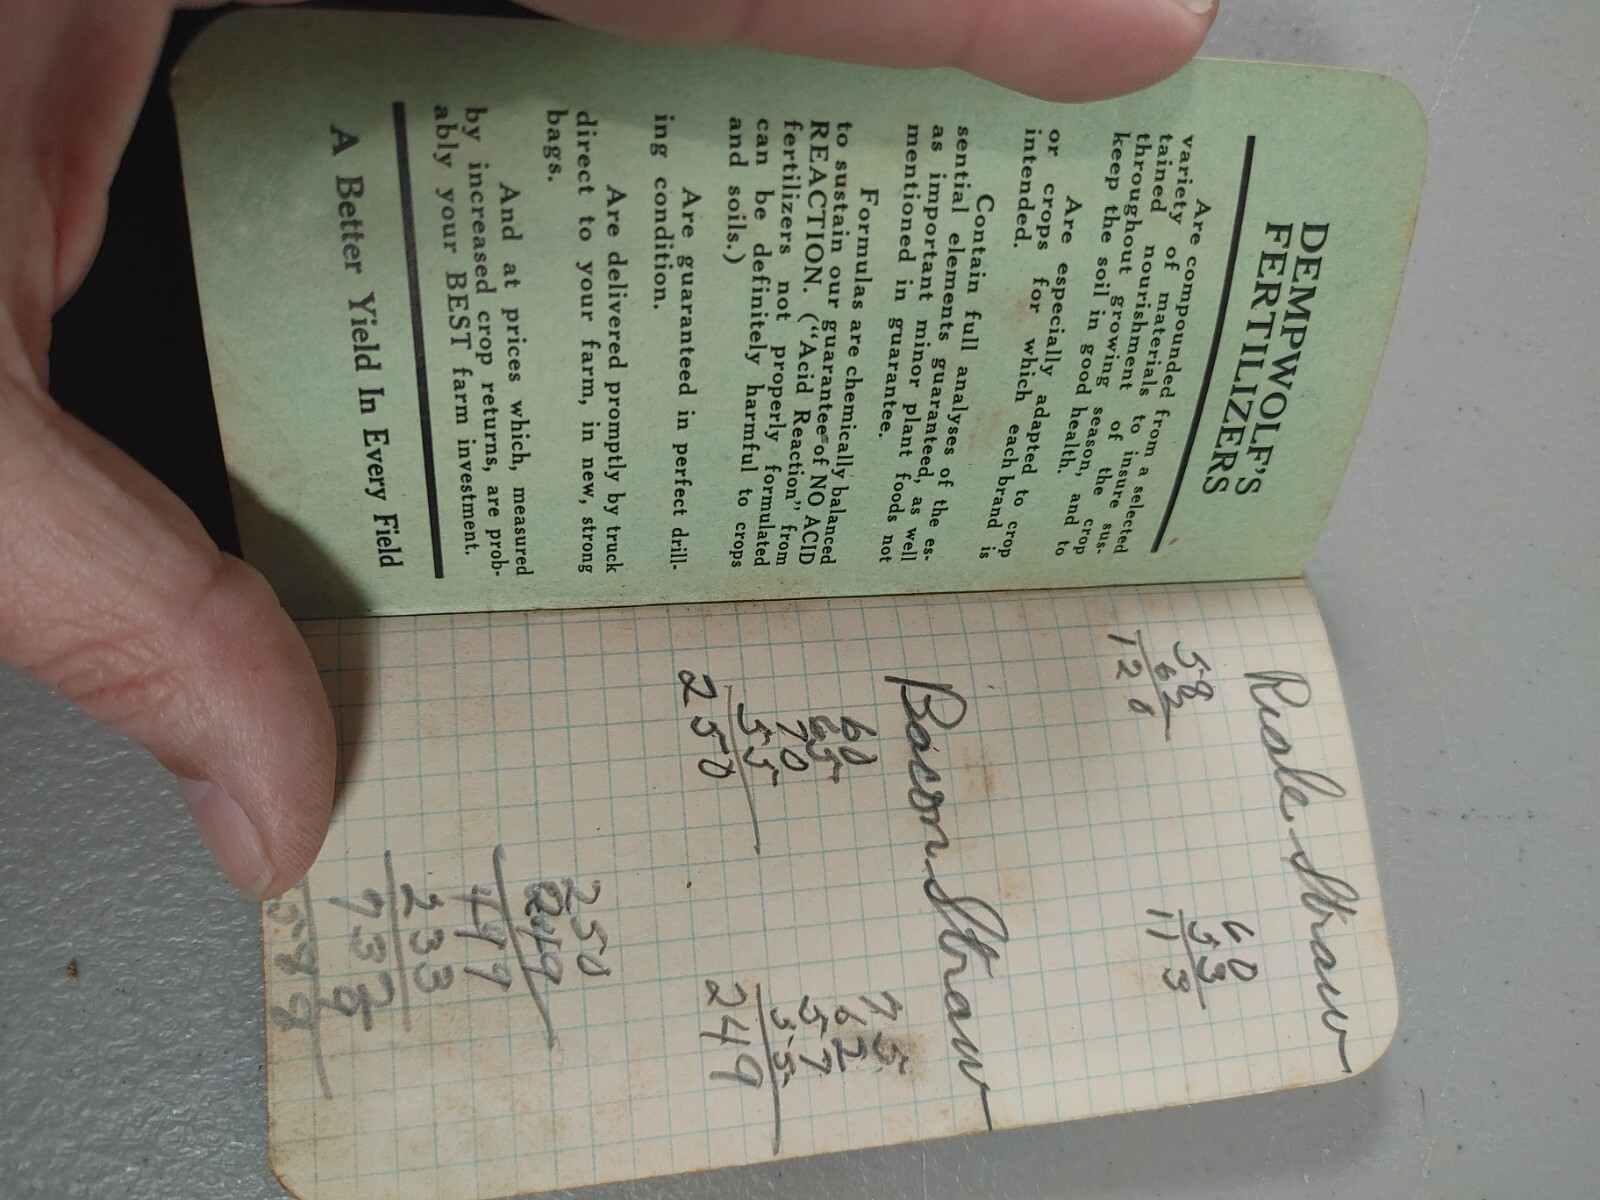 DEMPWOLF'S
FERTILIZERS
Are compounded from a selected
variety of materials to insure sus-
tained nourishment of the crop
throughout growing season, and to
keep the soil in good health.
Are especially adapted to crop
or crops for which each brand is
intended.
Contain full analyses of the es-
sential elements guaranteed, as well
as important minor plant foods not
mentioned in guarantee.
Formulas are chemically balanced
to sustain our guarantee of NO ACID
REACTION. ("Acid Reaction" from
fertilizers not properly formulated
can be definitely harmful to crops
and soils.)
Are guaranteed in perfect drill-
ing condition.
Are delivered promptly by truck
direct to your farm, in new, strong
bags.
And at prices which, measured
by increased crop returns, are prob-
ably your BEST farm investment.
A Better Yield In Every Field
Straw
58 60
62 53
120 113
Bacon Straw
60 75
65 62
70 57
55 55
250 249
250
249
499
233